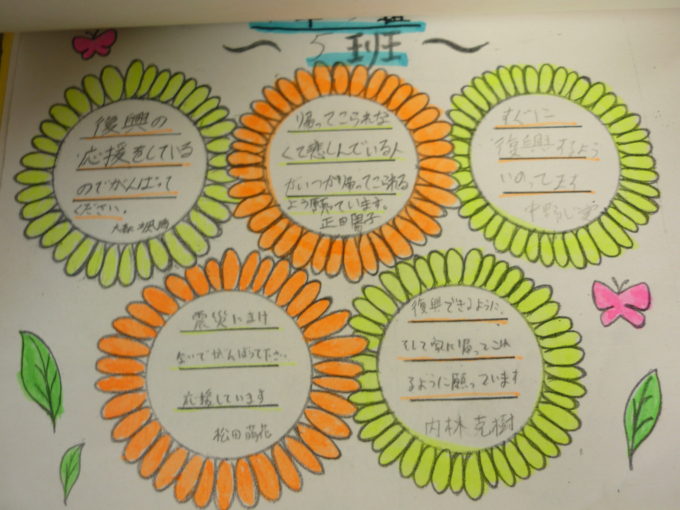 5班
復興の
応援をしている
のでがんばって
ください。
帰ってこられな
くて悲しんでいる人
がいつか帰ってこれる
よう願っています。
すぐに
復興するよう
いのってます
震災にまけ
ないでがんばって下さい
応援しています
松田萌花
復興できるように、
そして家に帰ってこれ
るように願っています
内林克樹